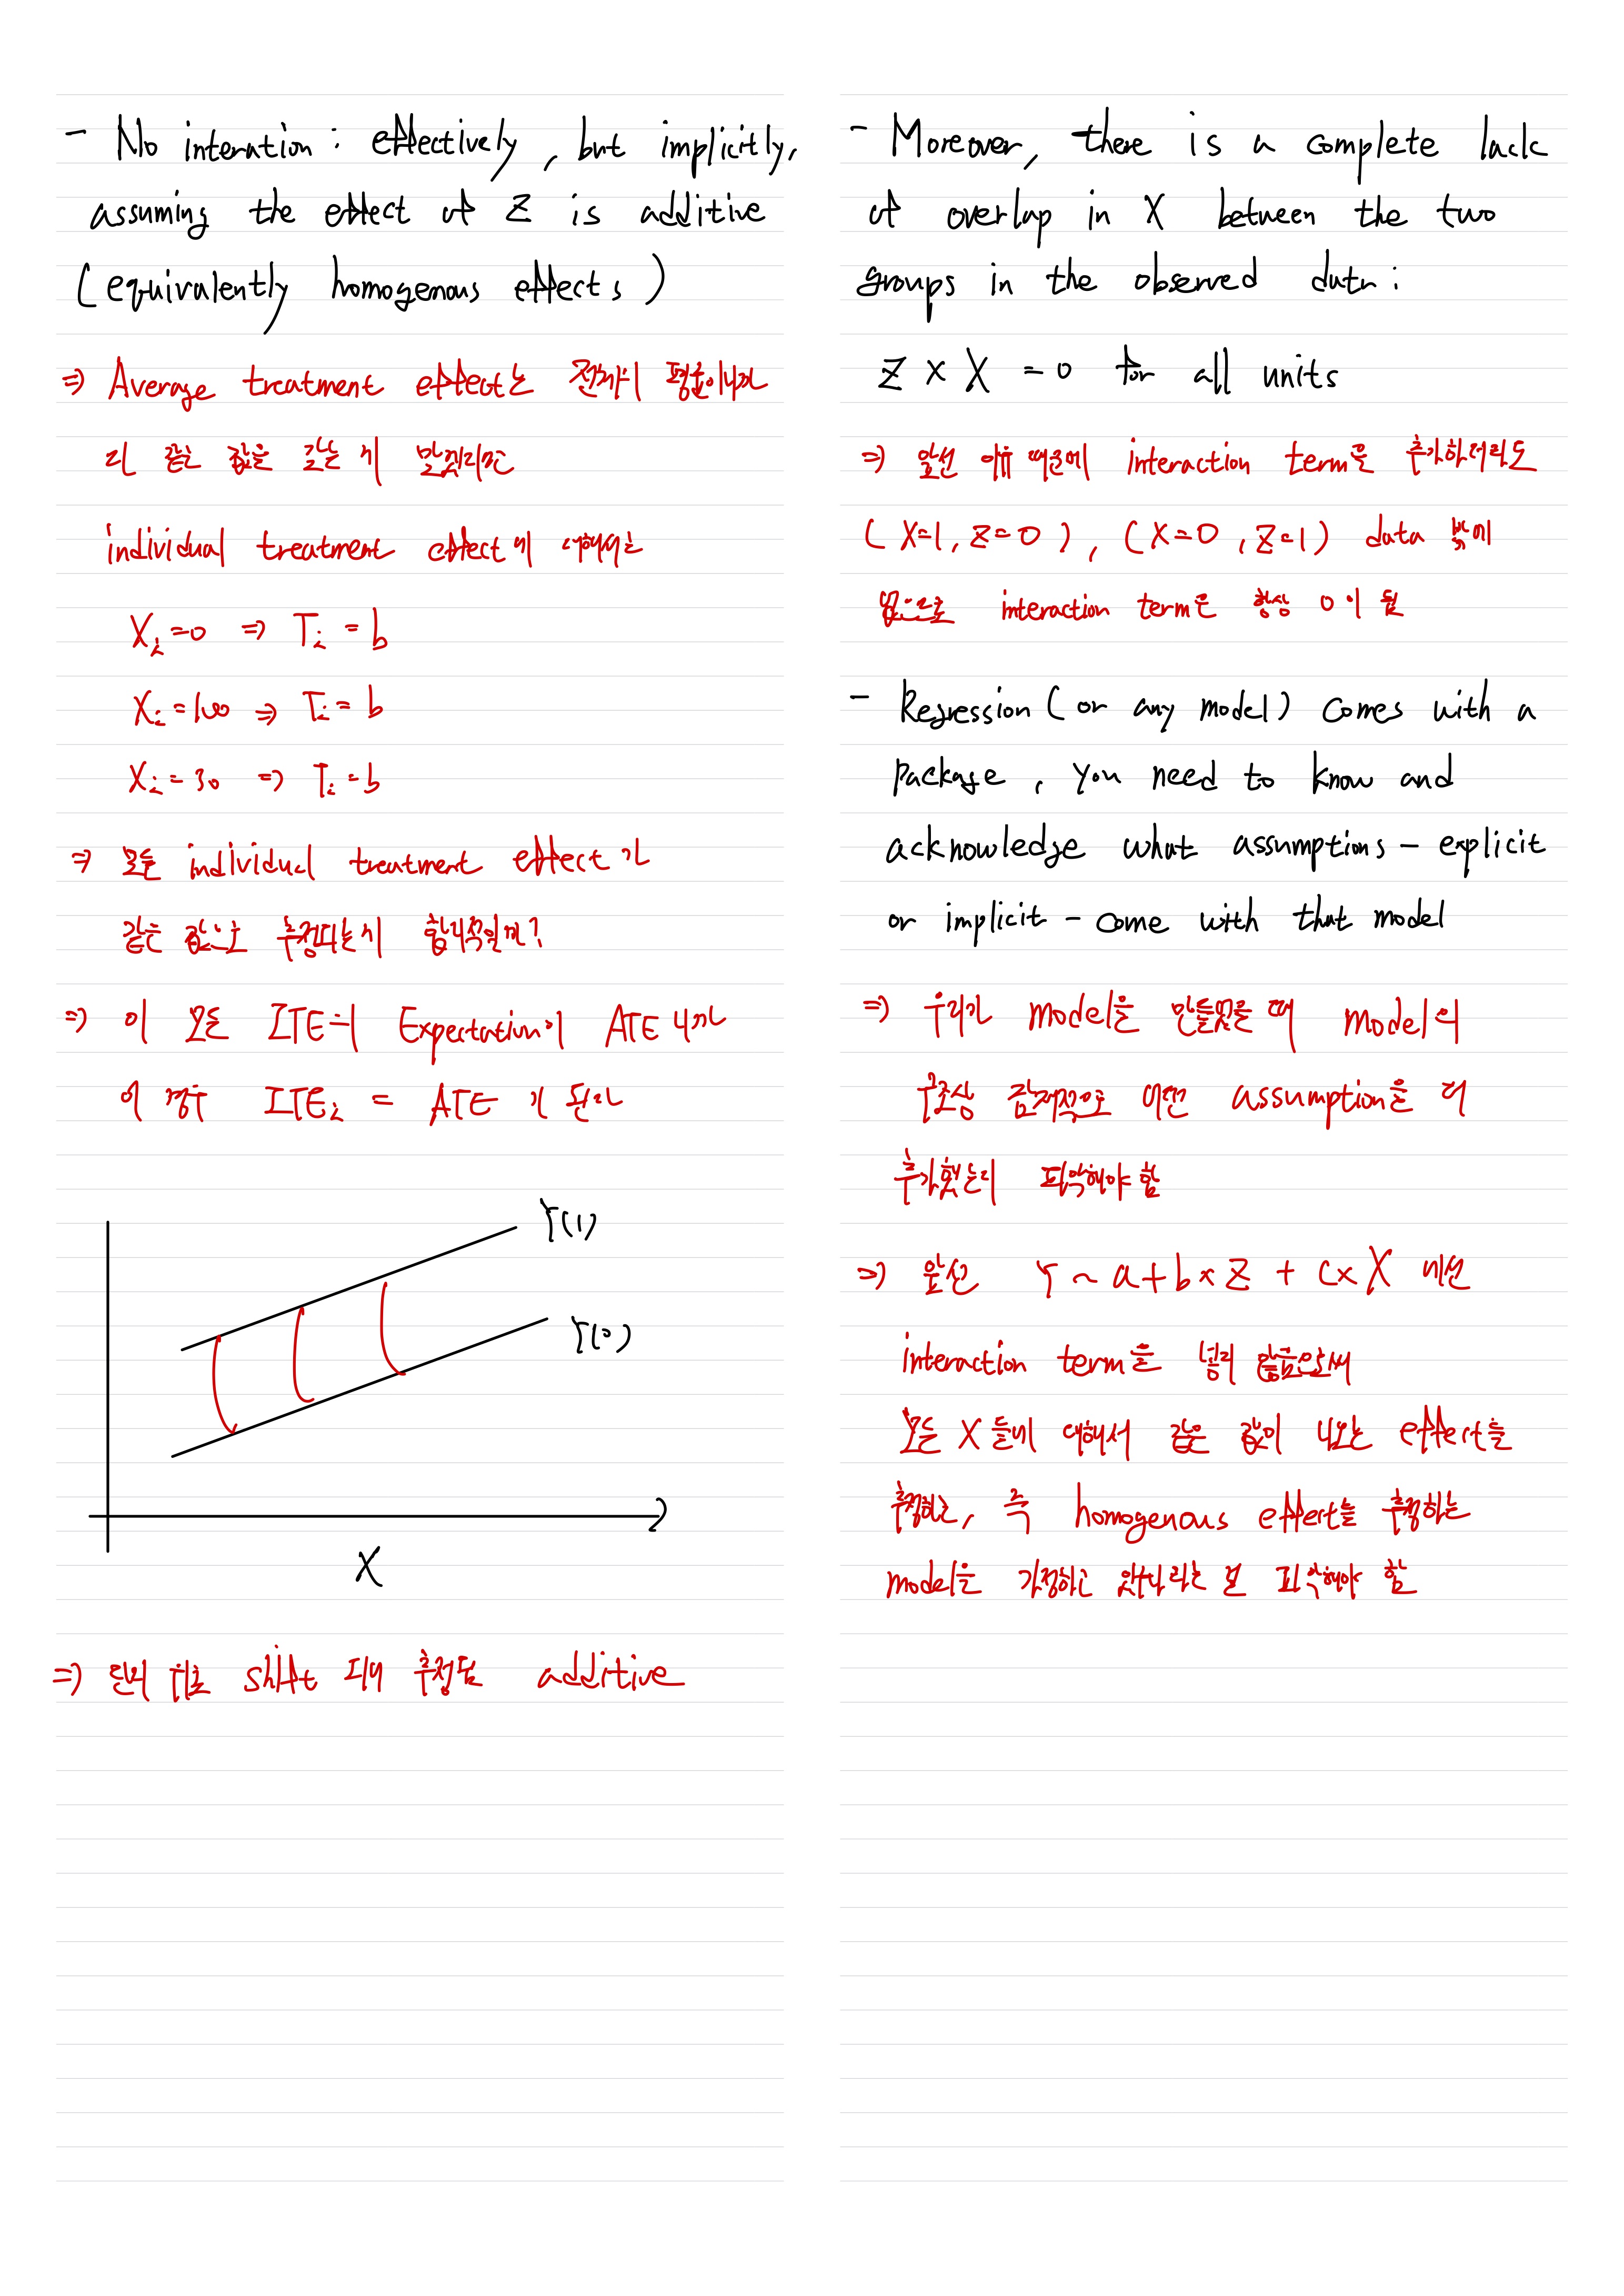 - No interation : effectively, but implicitly,
assuming the effect of Z is additive
(equivalently homogenous effects)
⇒ Average treatment effect는 전체의 평균이니까
다 같은 값을 갖는 게 맞겠지만
individual treatment effect에 대해서는
Xi=0 ⇒ Ti=b
Xi=100 ⇒ Ti=b
Xi=30 ⇒ Ti=b
⇒ 모든 individual treatment effect가
같은 값으로 추정되는게 합리적일까?
⇒ 이 모든 ITE들의 Expectation이 ATE니까
이 경우 ITEi = ATE가 된다
Y(1)
Y(0)
X
⇒ 단지 위로 shift 되어 추정됨 additive
- Moreover, there is a complete lack
of overlap in X between the two
groups in the observed data:
Z × X = 0 for all units
⇒ 앞선 이유 때문에 interaction term을 추가하더라도
(X=1, Z=0), (X=0, Z=1) data 밖에
없으므로 interaction term은 항상 0이 됨
- Regression (or any model) comes with a
package, you need to know and
acknowledge what assumptions - explicit
or implicit - come with that model
⇒ 우리가 model을 만들었을 때 model의
구조상 잠재적으로 어떤 assumption을 더
추가했는지 파악해야 함
⇒ 앞선 Y ~ a+b×Z + c×X 에선
interaction term을 넣지 않음으로써
모든 X들에 대해서 같은 값이 나오는 effect를
추정하는, 즉 homogenous effect를 추정하는
model을 가정하고 있다라는 걸 파악해야 함